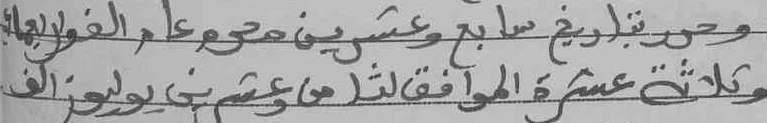 وحرر بتاريخ سابع وعشرين محرم عام الف واربعمائة
وثلاثة عشرة الموافق لثامن وعشرين يوليوز الف